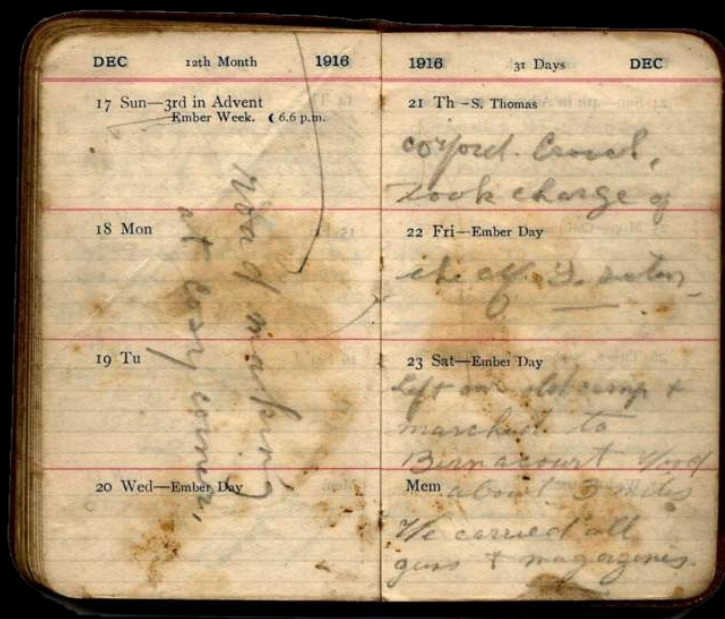 DEC 12th Month 1916
17 Sun—3rd in Advent
Ember Week. ☾ 6.6 p.m.
18 Mon
19 Tu
20 Wed—Ember Day
Road making
at cosy corner,
1916 31 Days DEC
21 Th—S. Thomas
took charge of
22 Fri—Ember Day
23 Sat—Ember Day
Left our old camp +
marched to
Bernacourt Wood
Mem about 3 miles
We carried all
guns + magazines.